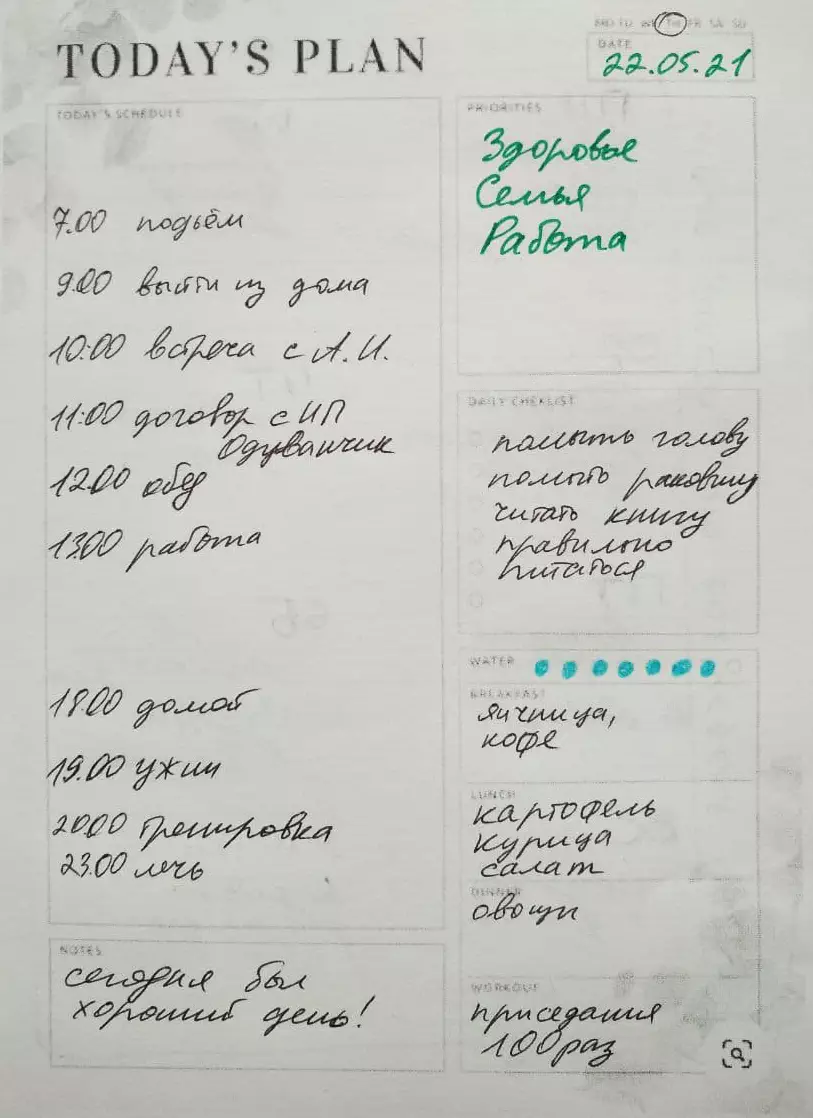 MO TU WE TH FR SA SU
TODAY'S PLAN
DATE
22.05.21
TODAY'S SCHEDULE
7.00 подъём
9.00 выйти из дома
10:00 встреча с А.И.
11:00 договор с ИП
Одуванчик
12.00 обед
13.00 работа
18.00 домой
19.00 ужин
20.00 тренировка
23.00 лечь
NOTES
сегодня был
хороший день!
PRIORITIES
Здоровье
Семья
Работа
DAILY CHEKLIST
помыть голову
помыть раковину
читать книгу
правильно
питаться
WATER
BREAKFAST
яичница,
кофе
LUNCH
картофель
курица
салат
DINNER
овощи
WORKOUT
приседания
100 раз